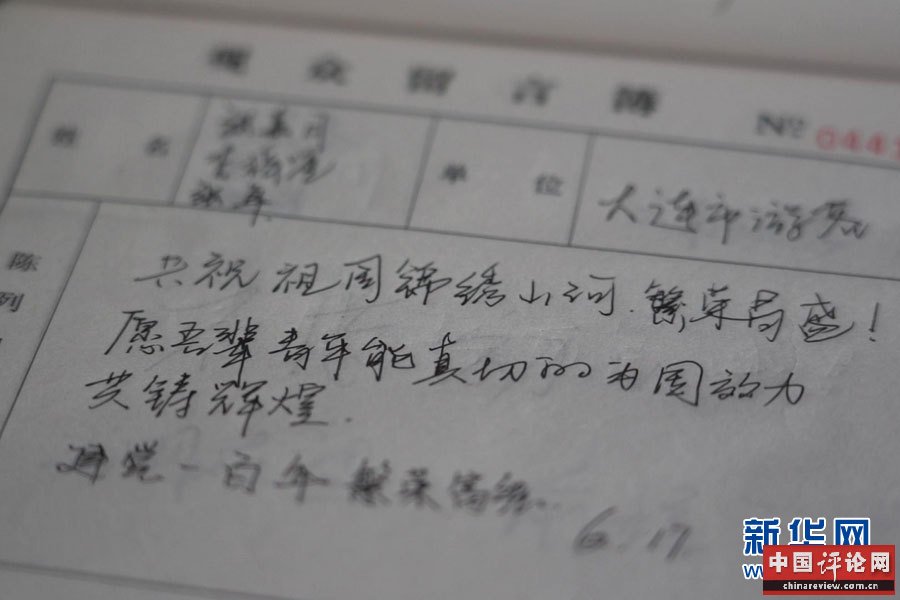 观众留言簿
№ 0441
姓名
单位
大连市游客
陈列
共祝祖国锦绣山河.繁荣昌盛!
愿吾辈青年能真切的为国效力
共铸辉煌.
一百年繁荣
6.17
新华网
WWW
中国评论网
chinareview.com.cn